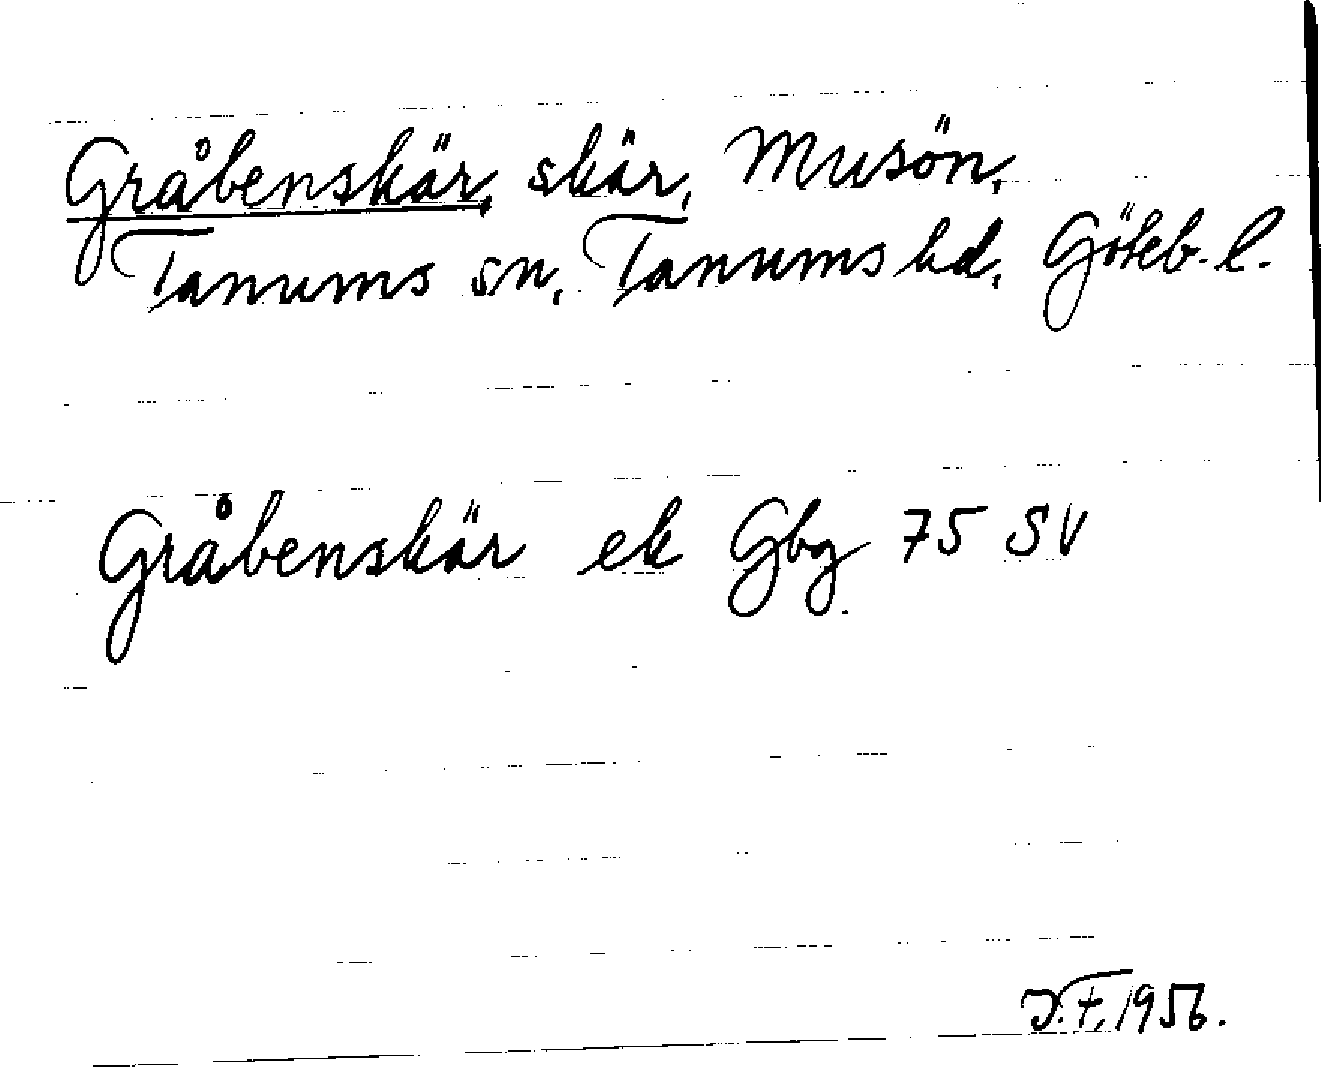 Gråbenskär, skär, Musön,
Tanums sn, Tanums hd, Göteb. l.
Gråbenskär ek Gbg 75 SV
J.F. 1956.